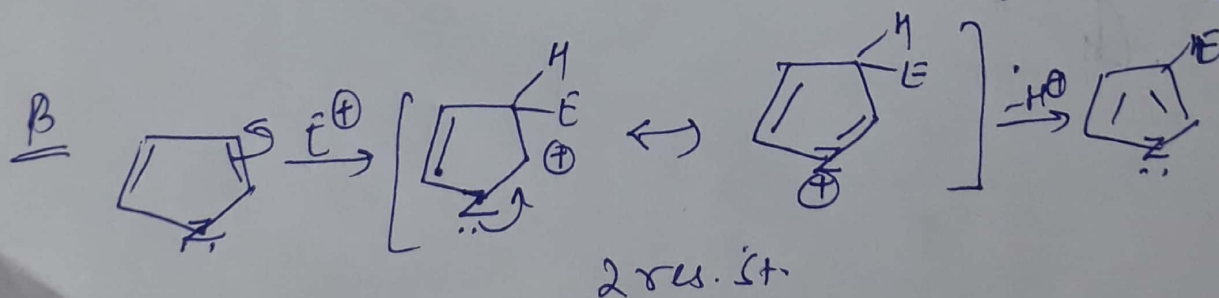 B E⊕ H E ⊕ Z ↔ H E Z ⊕ -H⊕ E Z
2 res. st.